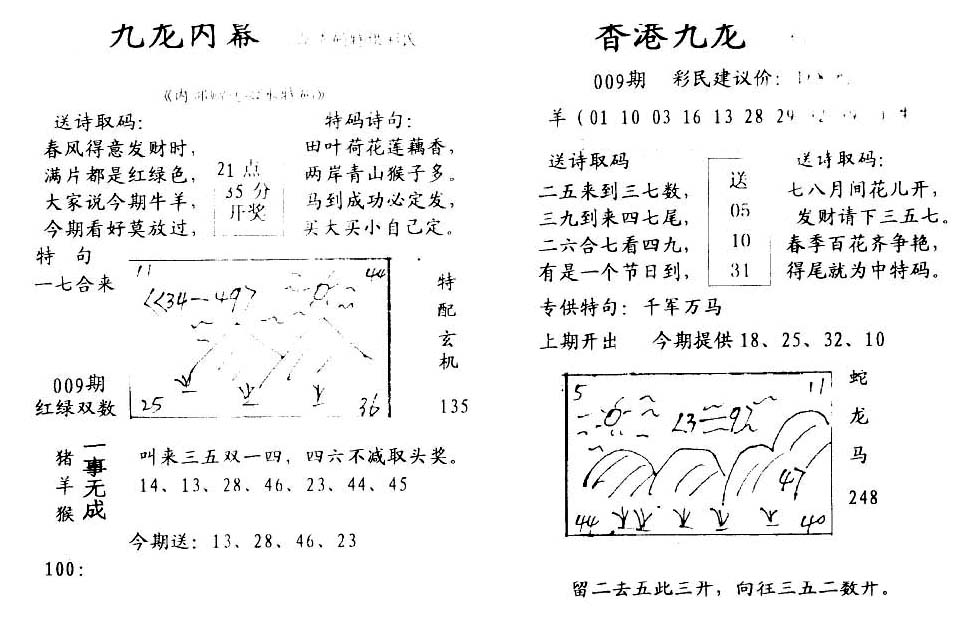 九龙内幕
送诗取码：
春风得意发财时，
满片都是红绿色，
大家说今期牛羊，
今期看好莫放过，
21点
35分
开奖
特码诗句：
田叶荷花莲藕香，
两岸青山猴子多。
马到成功必定发，
买大买小自己定。
特 句
一七合来
009期
红绿双数
11
44
34—497
25
36
特
配
玄
机
135
猪
羊
猴
一事无成
叫来三五双一四，四六不减取头奖。
14、13、28、46、23、44、45
今期送：13、28、46、23
100：
香港九龙
009期 彩民建议价：
羊（01 10 03 16 13 28 29
送诗取码
二五来到三七数，
三九到来四七尾，
二六合七看四九，
有是一个节日到，
送
05
10
31
送诗取码：
七八月间花儿开，
发财请下三五七。
春季百花齐争艳，
得尾就为中特码。
专供特句：千军万马
上期开出 今期提供18、25、32、10
5
11
47
44
40
蛇
龙
马
248
留二去五此三开，向往三五二数开。